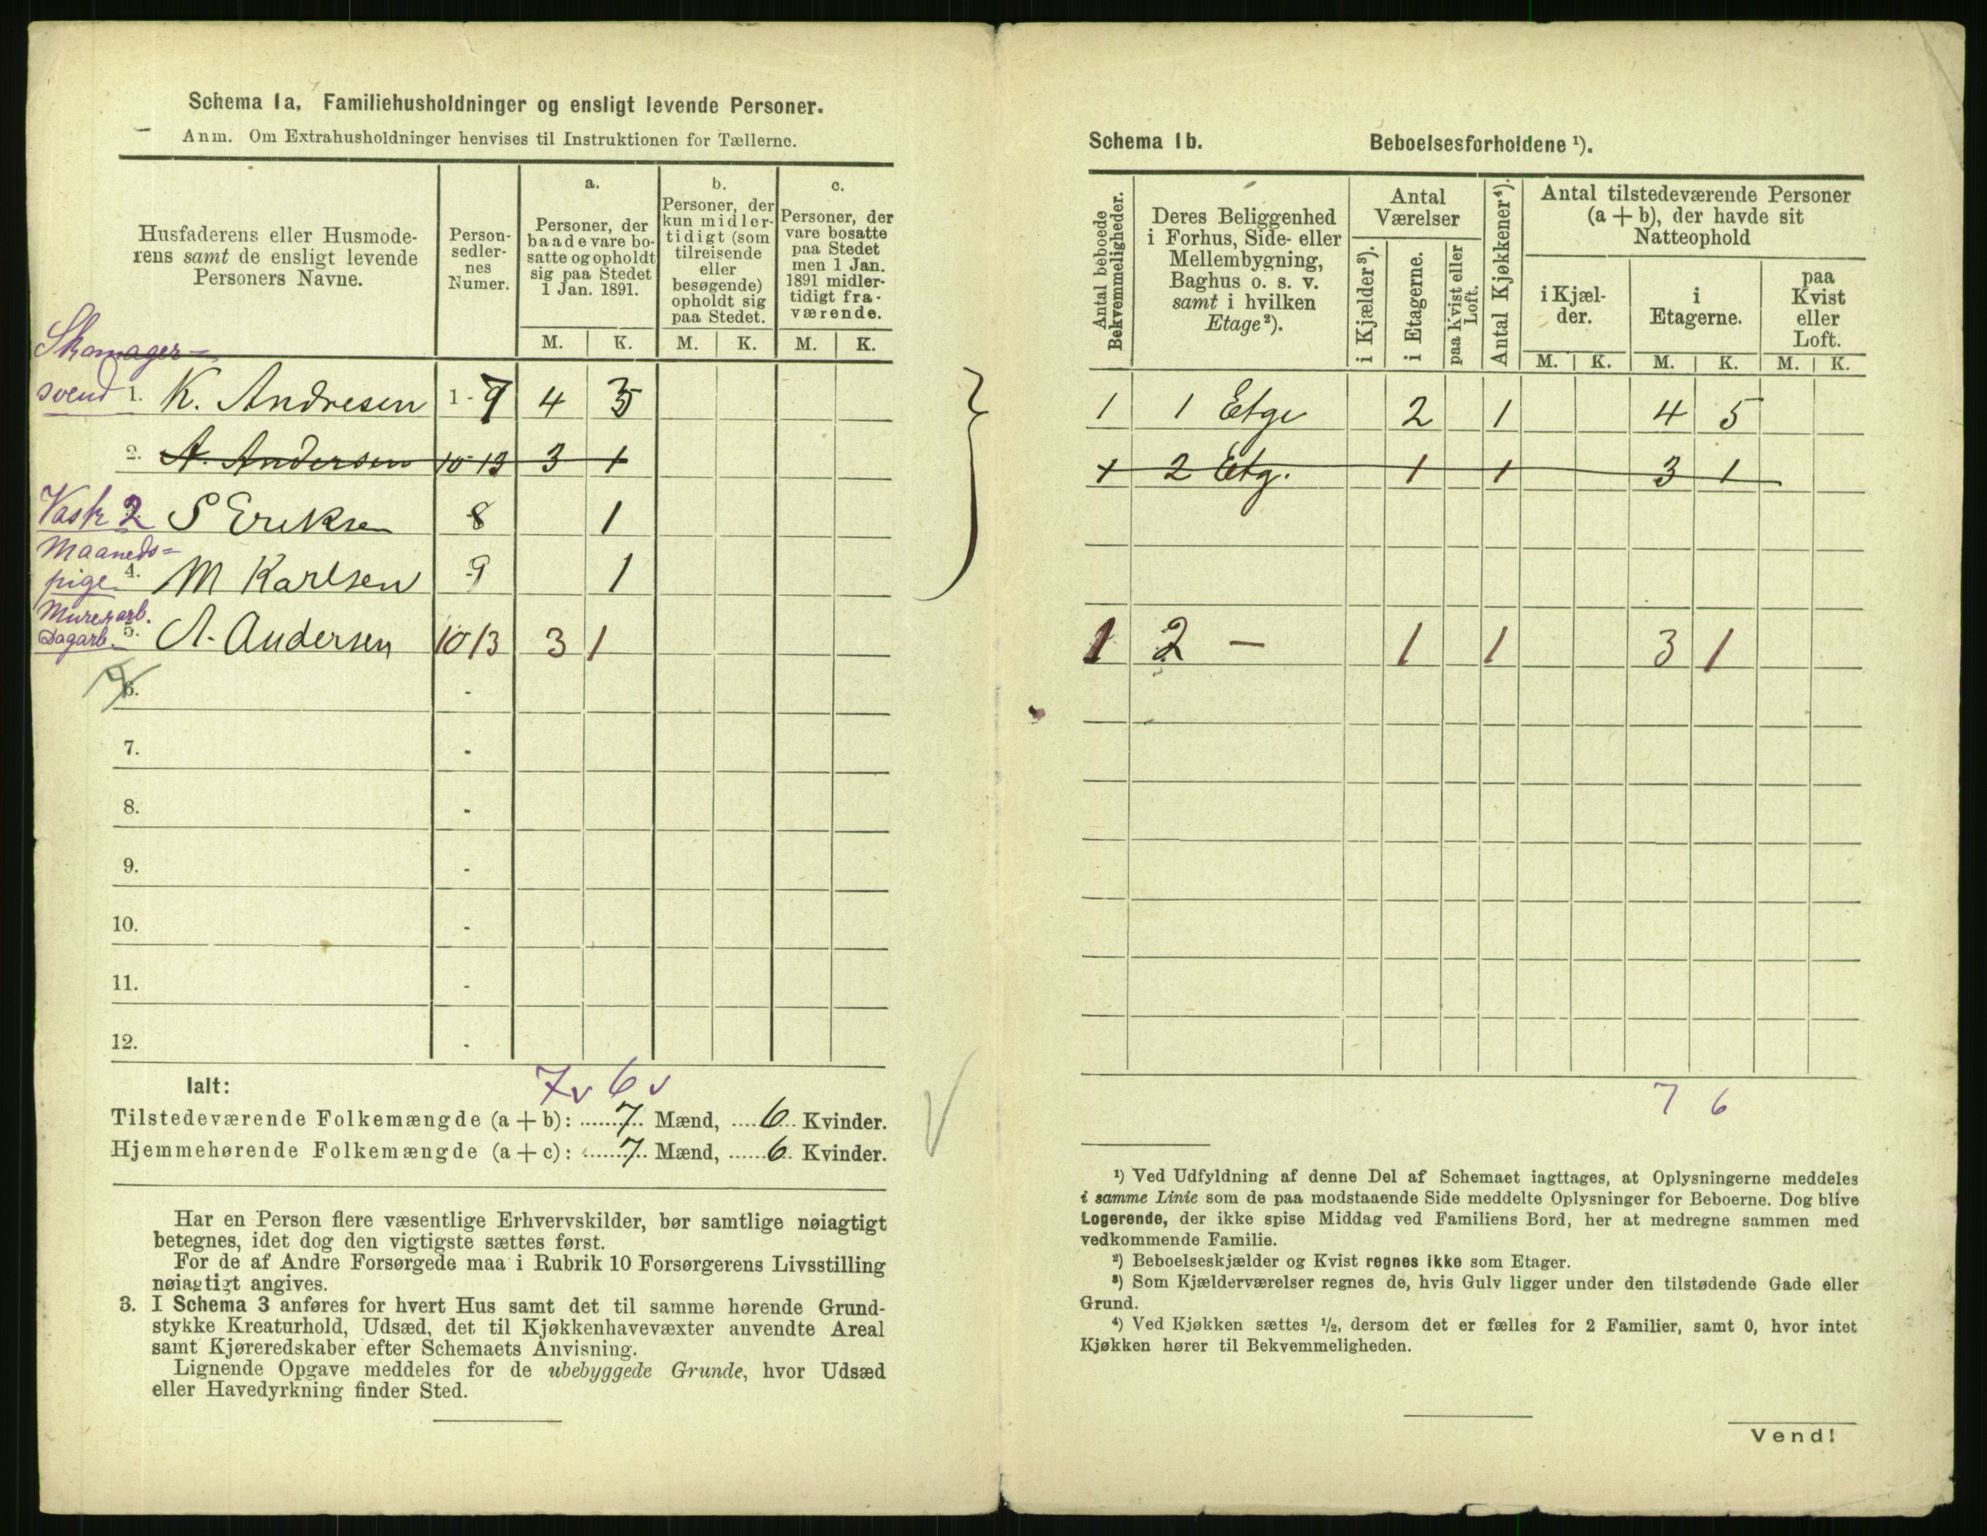 Schema 1a. Familiehusholdninger og ensligt levende Personer.
Anm. Om Extrahusholdninger henvises til Instruktionen for Tællerne.
Husfaderens eller Husmode-
rens samt de ensligt levende
Personers Navne.
Person-
sedler-
nes
Numer.
a.
Personer, der
baade vare bo-
satte og opholdt
sig paa Stedet
1 Jan. 1891.
b.
Personer, der
kun midler-
tidigt (som
tilreisende
eller
besøgende)
opholdt sig
paa Stedet.
c.
Personer, der
vare bosatte
paa Stedet
men 1 Jan.
1891 midler-
tidigt fra-
værende.
M. K. M. K. M. K.
Skomager-
svend 1. K. Andresen 1 - 7 4 3
2. A. Andersen 10-13 3 1
Vask 2 S Eriksen 8 1
Maaneds-
pige 4. M Karlsen 9 1
Murerarb.
Dagarb. 5. A. Andersen 10 13 3 1
6. -
7. -
8. -
9. -
10. -
11. -
12. -
7v 6v
Ialt:
Tilstedeværende Folkemængde (a + b): 7 Mænd, 6 Kvinder.
Hjemmehørende Folkemængde (a + c): 7 Mænd, 6 Kvinder.
Har en Person flere væsentlige Erhvervskilder, bør samtlige nøiagtigt
betegnes, idet dog den vigtigste sættes først.
For de af Andre Forsørgede maa i Rubrik 10 Forsørgerens Livsstilling
nøiagtigt angives.
3. I Schema 3 anføres for hvert Hus samt det til samme hørende Grund-
stykke Kreaturhold, Udsæd, det til Kjøkkenhavevæxter anvendte Areal
samt Kjøreredskaber efter Schemaets Anvisning.
Lignende Opgave meddeles for de ubebyggede Grunde, hvor Udsæd
eller Havedyrkning finder Sted.
Schema 1b. Beboelsesforholdene ¹).
Antal beboede
Bekvemmeligheder.
Deres Beliggenhed
i Forhus, Side- eller
Mellembygning,
Baghus o. s. v.
samt i hvilken
Etage²).
Antal
Værelser
i Kjælder³).
i Etagerne.
paa Kvist eller
Loft.
Antal Kjøkkener⁴).
Antal tilstedeværende Personer
(a + b), der havde sit
Natteophold
i Kjæl-
der.
i
Etagerne.
paa
Kvist
eller
Loft.
M. K. M. K. M. K.
1 1 Etge 2 1 4 5
1 2 Etg. 1 1 3 1
1 2 — 1 1 3 1
7 6
¹) Ved Udfyldning af denne Del af Schemaet iagttages, at Oplysningerne meddeles
i samme Linie som de paa modstaaende Side meddelte Oplysninger for Beboerne. Dog blive
Logerende, der ikke spise Middag ved Familiens Bord, her at medregne sammen med
vedkommende Familie.
²) Beboelseskjælder og Kvist regnes ikke som Etager.
³) Som Kjælderværelser regnes de, hvis Gulv ligger under den tilstødende Gade eller
Grund.
⁴) Ved Kjøkken sættes ½, dersom det er fælles for 2 Familier, samt 0, hvor intet
Kjøkken hører til Bekvemmeligheden.
Vend!